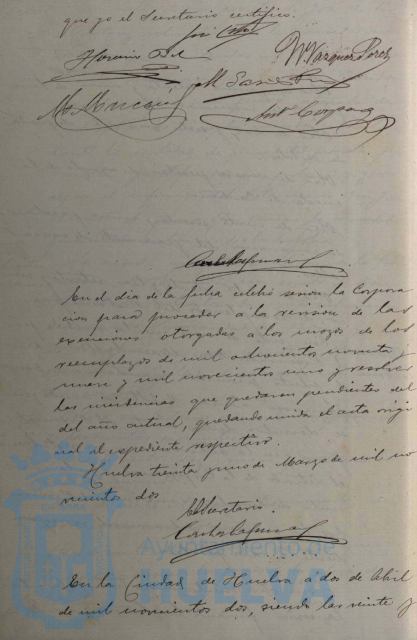 que yo el Secretario certifico.
José
Horacio Bel
W. Vazquez Perez
M.
M.
Ant. Corpas
En el dia de la fecha celebró sesión la Corpora
cion para proceder a la revision de las
exenciones otorgadas á los mozos de los
reemplazos de mil ochocientos noventa y
nueve y mil novecientos uno y resolver
las incidencias que quedaron pendientes del
del año actual, quedando unida el acta origi
nal al expediente respectivo.
Huelva treinta y uno de Marzo de mil no
vecientos dos
El Secretario.
Ayuntamiento de
HUELVA
En la Ciudad de Huelva á dos de Abril
de mil novecientos dos, siendo las veinte y